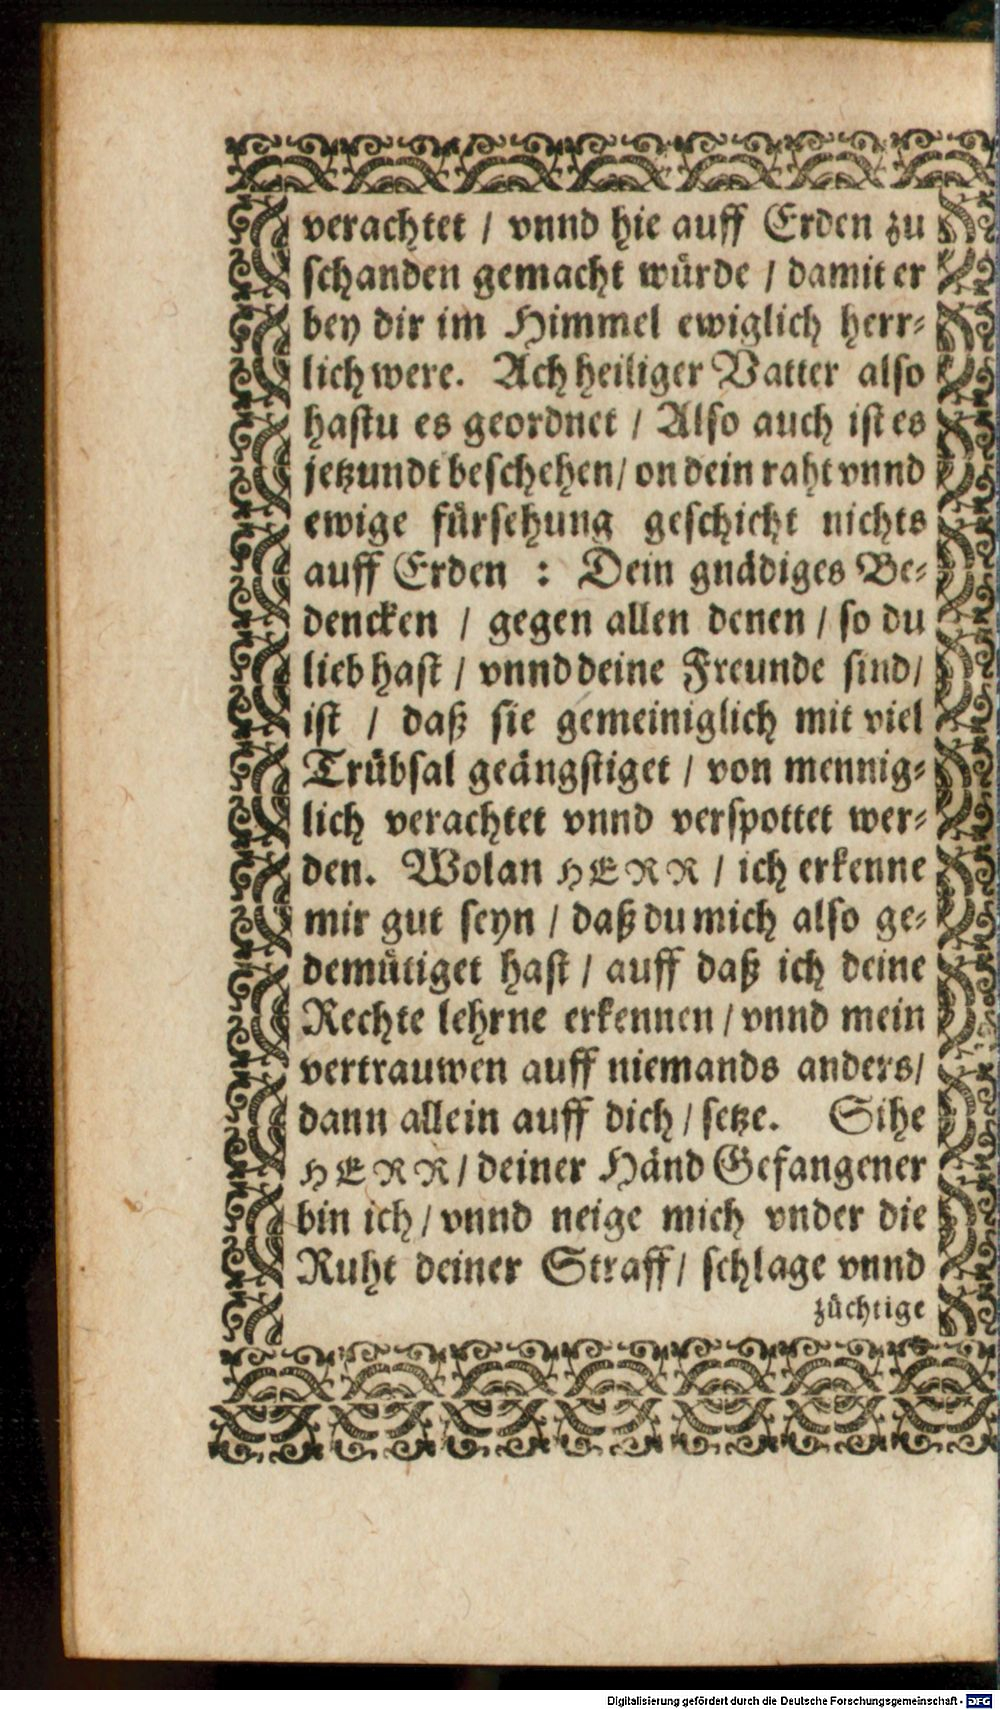 verachtet / vnnd hie auff Erden zu
schanden gemacht würde / damit er
bey dir im Himmel ewiglich herr⸗
lich were. Ach heiliger Vatter also
hastu es geordnet / Also auch ist es
jetzundt beschehen / on dein raht vnnd
ewige fürsehung geschicht nichts
auff Erden : Dein gnädiges Be⸗
dencken / gegen allen denen / so du
lieb hast / vnnd deine Freunde sind /
ist / daß sie gemeiniglich mit viel
Trübsal geängstiget / von mennig⸗
lich verachtet vnnd verspottet wer⸗
den. Wolan HERR / ich erkenne
mir gut seyn / daß du mich also ge⸗
demütiget hast / auff daß ich deine
Rechte lehrne erkennen / vnnd mein
vertrauwen auff niemands anders /
dann allein auff dich / setze. Sihe
HERR / deiner Händ Gefangener
bin ich / vnnd neige mich vnder die
Ruht deiner Straff / schlage vnnd
züchtige
Digitalisierung gefördert durch die Deutsche Forschungsgemeinschaft - DFG